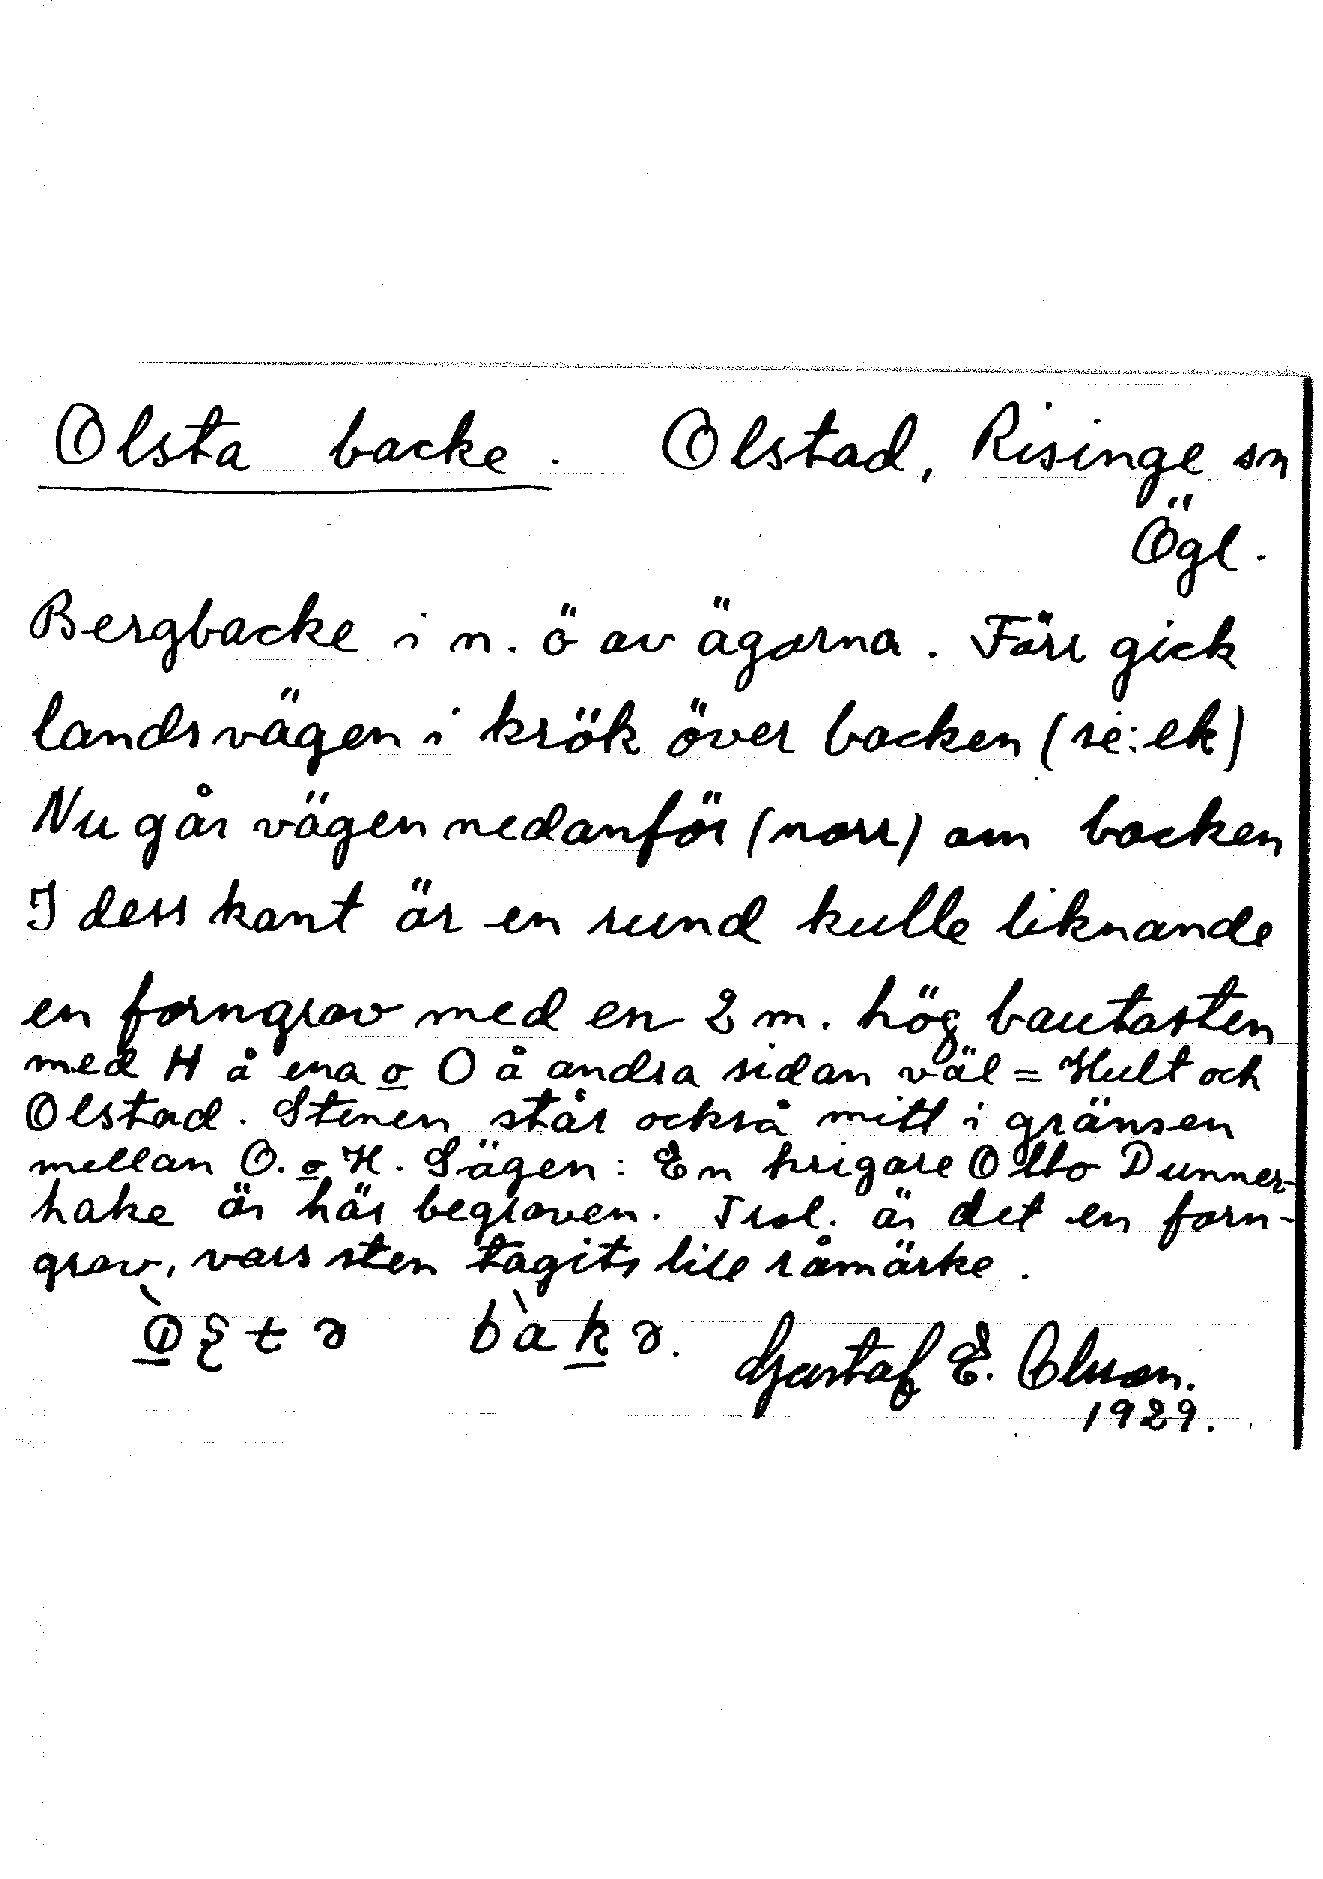 Olsta backe. Olstad, Risinge sn
Ögl.
Bergbacke i n. ö av ägorna. Förr gick
landsvägen i krök över backen (se: ek)
Nu går vägen nedanför (norr) om backen
I dess kant är en rund kulle liknande
en forngrav med en 2 m. hög bautasten
med H å ena o O å andra sidan väl = Hult och
Olstad. Stenen står också mitt i gränsen
mellan O. o H. Sägen: En krigare Otto Dunner-
hake är här begraven. Trol. är det en forn-
grav, vars sten tagits till råmärke.
bàkə.
Gustaf E. Olson.
1929.